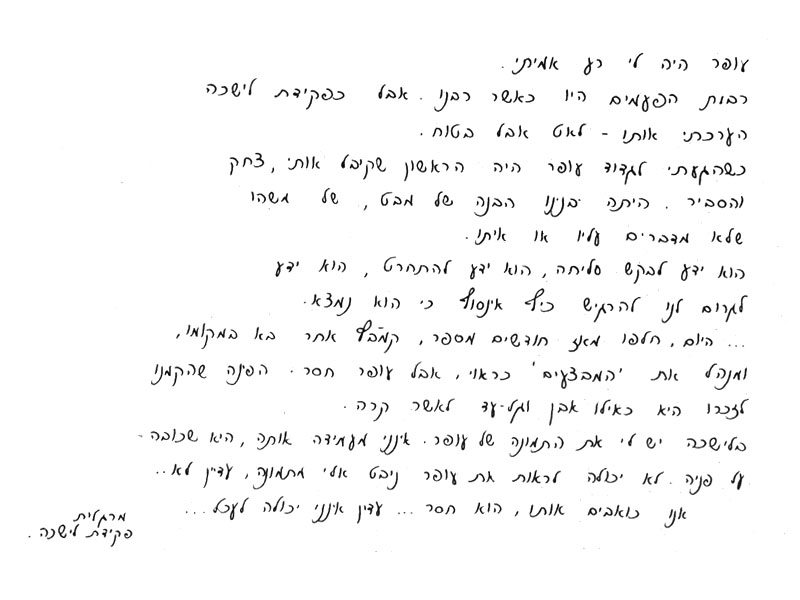 עופר היה לי רע אמיתי.
רבות הפעמים היו כאשר רבנו. אבל כפקידת לישכה
הערכתי אותו - לאט אבל בטוח.
כשהגעתי לגדוד עופר היה הראשון שקיבל אותי, צחק
והסביר. היתה בנינו הבנה של מבט, של משהו
שלא מדברים עליו או איתו.
הוא ידע לבקש סליחה, הוא ידע להתחרט, הוא ידע
לגרום לנו להרגיש כיף אינסוף כי הוא נמצא.
... היום, חלפו מאז חודשים מספר, קמב"ץ אחר בא במקומו,
ומנהל את 'המבצעים' כראוי, אבל עופר חסר. הפינה שהקמנו
לזכרו היא כאילו אבן וגל-עד לאשר קרה.
בלישכה יש לי את התמונה של עופר. אינני מעמידה אותה, היא שכובה -
על פניה. לא יכולה לראות את עופר ניבט אלי מתמונה, עדיין לא..
אנו כואבים אותו, הוא חסר... עדין אינני יכולה לעכל...
מרגלית
פקידת לישכה.